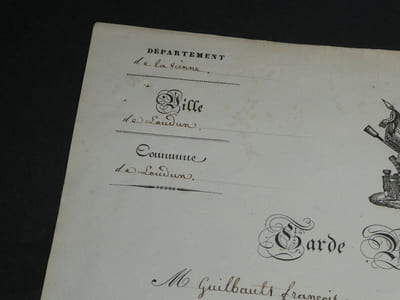 DÉPARTEMENT
de la vienne.
Ville
de Loudun.
Commune
de Loudun.
Garde
M Guilbault françois